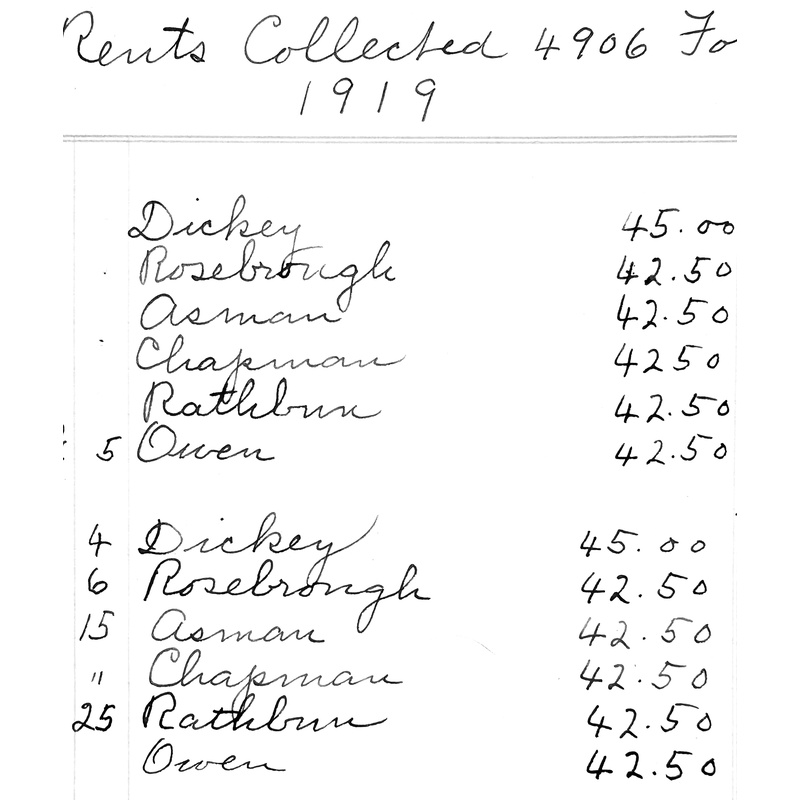 Rents Collected 4906 Fo
1919
Dickey 45.00
Rosebrough 42.50
Asman 42.50
Chapman 4250
Rathbun 42.50
5 Owen 42.50
4 Dickey 45.00
6 Rosebrough 42.50
15 Asman 42.50
" Chapman 42.50
25 Rathbun 42.50
Owen 42.50